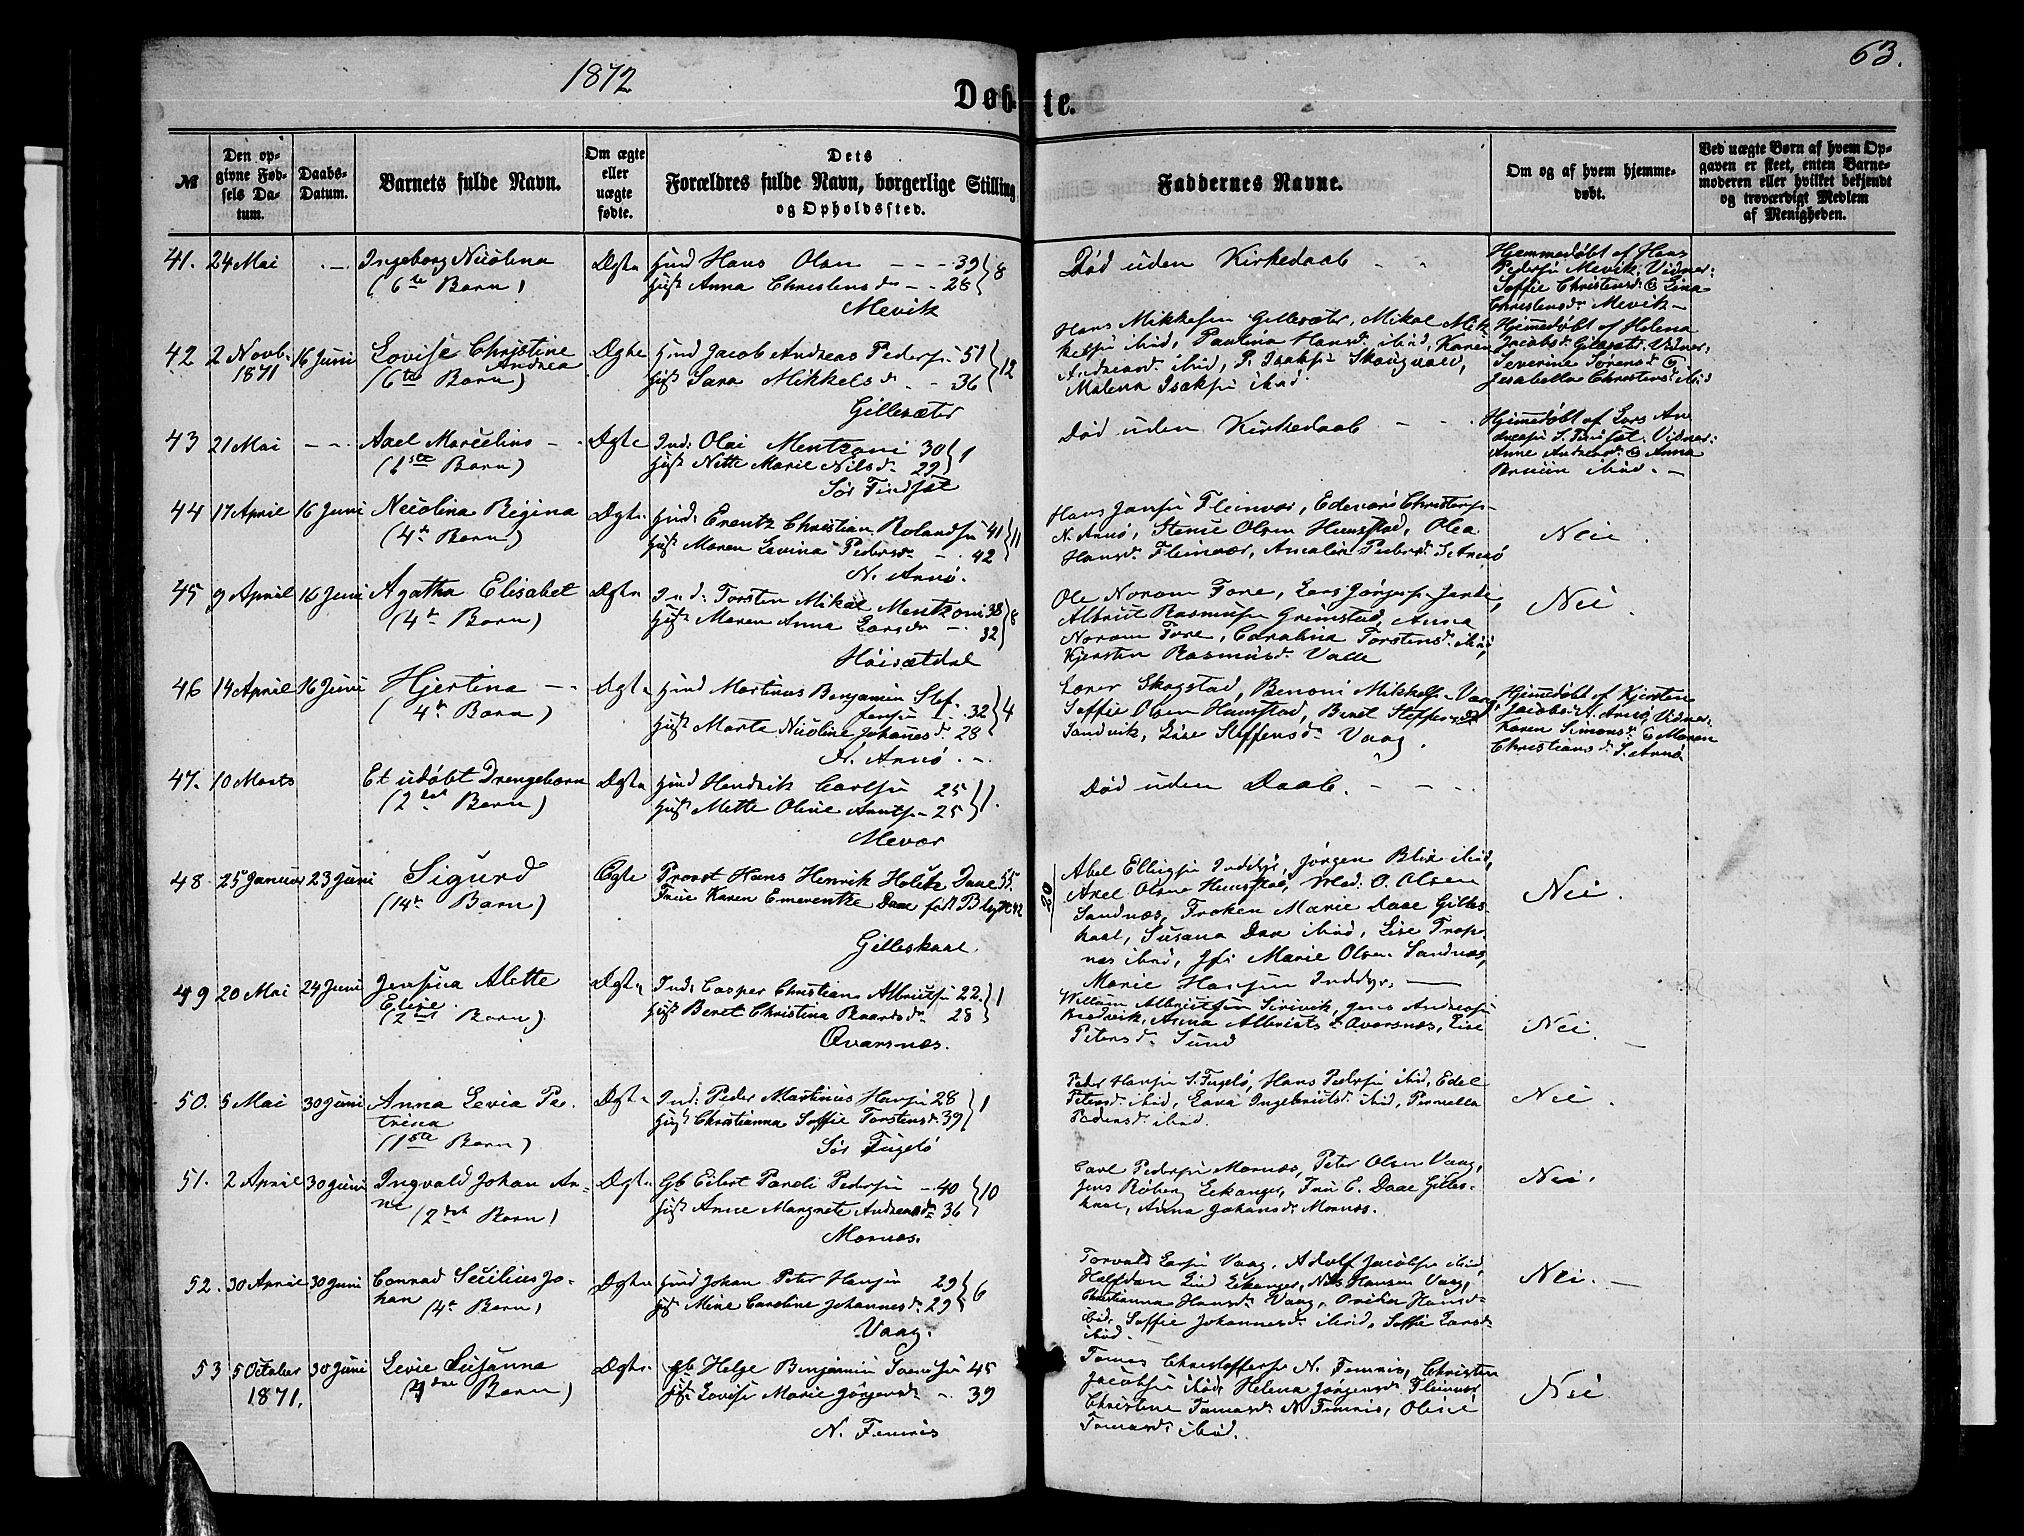 1872
63.
Døbte.
№
Den opgivne Fødsels Datum.
Daabs-Datum.
Barnets fulde Navn.
Om ægte eller uægte fødte.
Dets Forældres fulde Navn, borgerlige Stilling og Opholdssted.
Faddernes Navne.
Om og af hvem hjemmedøbt.
Ved uægte Børn af hvem Opgaven er skeet, enten Barnemoderen eller hvilket bekjendt og troværdigt Medlem af Menigheden.
41. 24 Mai Ingeborg Nicolina Ægte Hans Olsen 39 8
(6te Barn) Anna Christensdr 28
Mevik
Død uden Kirkedaab
Hjemmedøbt af Hans
Pedersen Mevik, Vidner:
Soffie Christensdr Lina
Christensdr Mevik
42 2 Novb. 1871 16 Juni Lovise Christine Ægte Jacob Andreas Peders 51 12
Andrea
(6te Barn) Sara Mikkelsdr 36
Gillesæter
Hans Mikkelsen Gillesæter, Mikal Mik
kelsen ibid, Paulina Hansdr ibid, Karen
Andreasdr ibid, P. Isaksen Skaugvold,
Malena Isaksen ibid.
Hjemmedøbt af Helena
Jacobsdr Vidner:
Severine Sørensdr
Jesabella Christensdr ibid
43 21 Mai Axel Marcelius Ægte Ind: Olai Mentzoni 30 1
(1ste Barn) Nette Marie Nilsdr 29
Sør Findset
Død uden Kirkedaab
Hjemmedøbt af Lars An
Vidner:
Anna
ibid.
44 17 April 16 Juni Nicolina Regina Ægte Erentz Christian Rolandsen 41 11
(4de Barn) Maren Levina Pedersdr 42
N. Arnø.
Hans Jansen Fleinvær, Edevart Christophs
N. Arnø, Olsen Hunstad, Olea
Hansdr Fleinvær, Amalie Pedersdr S. Arnø
Nei
45 9 April 16 Juni Agatha Elisabet Ægte Ind: Torsten Mikal Mentzoni 38 8
(4de Barn) Maren Anna Larsdr 32
Høisætdal
Ole Norom Fore,
Albrigt Rasmusen Grimstad, Anna
Norom Fore, Carolina Torstensdr ibid,
Kjersten Rasmusdr Valle
Nei
46 14 April 16 Juni Hjertina Ægte Martinus Benjamin Stef-
(4de Barn) fensen 32 4
Marta Nicoline Johanesdr 28
Arnø
Skogstad, Benoni Mikkelsen Vaag,
Soffie Olsen Hunstad, Beret Steffensdr
Sandvik, Lise Steffensdr Vaag.
Hjemedøbt af Kjersten
Jacobs N. Arnø, Vidner:
Karen Simonsdr Maren
Christiansdr S. Arnø
47. 10 Marts Et udøbt Drengebarn Ægte Hendrik Carlsen 25 1.
(2det Barn) Mette Oline Arntsen 25
Mevær
Død uden Daab.
48 25 Januar 23 Juni Sigurd Ægte Provst Hans Henrik Daae 55
(14de Barn) Frue Karen Emerentze Daae født 42
Gilleskaal
20
Abel Ellingsen Inddyr, Jørgen Blix ibid,
Axel Olsen Hunstad, Mad. O. Olsen
Sandnæs, Frøken Marie Daae Gilles-
kaal, Susana Daae ibid, Lise Trop
næs ibid, Marie Olsen Sandnæs,
Marie Hansen Inddyr.
Nei.
49 20 Mai 24 Juni Jensina Alette Ægte Ind: Casper Christian Albrigtsen 22. 1
Elise
(2det Barn) Beret Christina Baardsdr 28
Qvarsnæs.
Willum Albrigtsen Jens Andreasen
Anna Albrigtsdr Qvarsnæs, Lise
Petersdr Sund
Nei.
50. 5 Mai 30 Juni Anna Levia Pe- Ægte Ind: Peder Martinus Hansen 28 1
trina
(1ste Barn) Christianna Soffie Torstensdr 39
Sør Fugelø
Peder Hansen S. Fugelø, Hans Pedersen ibid, Edel
Petersdr ibid, Ingebrigtsdr ibid, Pernella
Pedersdr ibid.
Nei.
51. 2 April 30 Juni Ingvald Johan Ar- Ægte Gb Eilert Pareli Pedersen 40 10
ne
(2det Barn) Anne Margrete Andreasdr 36
Mornæs.
Carl Pedersen Mornæs, Peter Olsen Vaag,
Jens Røberg Eekanger, Fru C. Daae Gilles-
kaal, Anna Johansdr Mornæs.
Nei.
52. 30 April 30 Juni Conrad Secilius Jo- Ægte Johan Peter Hansen 29 6
han
(4de Barn) Mine Caroline Johannesdr 29
Vaag.
Torvald Larsen Vaag, Adolf Jacobsen ibid,
Halfdan Lind Eekanger, Nils Hansen Vaag,
Christianna Hansdr Vaag, Hansdr
ibid, Soffie Johannesdr ibid, Soffie Larsdr
ibid.
Nei.
53 5 October 1871. 30 Juni Levie Susanna Ægte Gb Helge Benjamin 45
(4de Barn) Lovise Marie Jørgensdr 39
N. Femris
Tomas Christoffersen N. Femris, Christen
Jacobsen ibid, Helena Jørgensdr Fleinvær
Christine Tomasdr N. Femris, Oline
Tomasdr ibid.
Nei